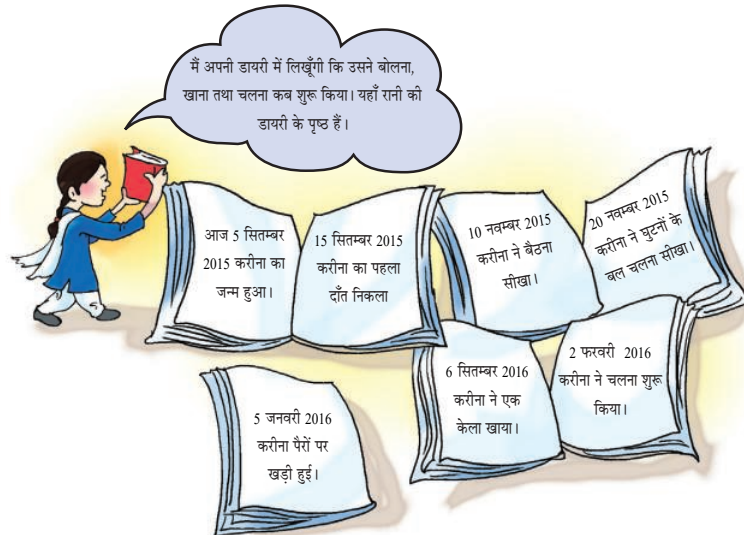 मैं अपनी डायरी में लिखूँगी कि उसने बोलना,
खाना तथा चलना कब शुरू किया। यहाँ रानी की
डायरी के पृष्ठ हैं।
आज 5 सितम्बर
2015 करीना का
जन्म हुआ।
15 सितम्बर 2015
करीना का पहला
दाँत निकला
10 नवम्बर 2015
करीना ने बैठना
सीखा।
20 नवम्बर 2015
करीना ने घुटनों के
बल चलना सीखा।
5 जनवरी 2016
करीना पैरों पर
खड़ी हुई।
6 सितम्बर 2016
करीना ने एक
केला खाया।
2 फरवरी 2016
करीना ने चलना शुरू
किया।